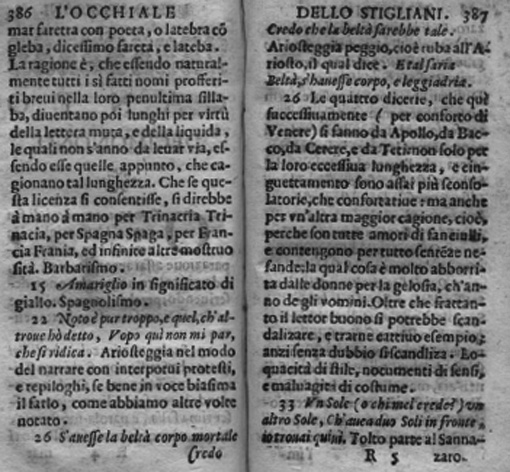 386 L'OCCHIALE
mar faretra con poeta, o latebra cō
gleba, dicessimo fareta, e lateba.
La ragione è, che essendo natural-
mente tutti i sì fatti nomi profferi-
ti breui nella loro penultima silla-
ba, diuentano poi lunghi per virtù
della lettera muta, e della liquida,
le quali non s'anno da leuar via, es-
sendo esse quelle appunto, che ca-
gionano tal lunghezza. Che se que-
sta licenza si consentisse, si direbbe
à mano à mano per Trinacria Tri-
nacia, per Spagna Spaga, per Fran-
cia Frania, ed infinite altre mostruo
sità. Barbarismo.
15 Amariglio in significato di
giallo. Spagnolismo.
22 Noto è pur troppo, e quel, ch'al-
troue hò detto, Vopo quì non mi par,
che si ridica. Ariosteggia nel modo
del narrare con interpotui protesti,
e repiloghi, se bene in voce biasima
il farlo, come abbiamo altre volte
notato.
26 S'auesse la beltà corpo mortale
Credo
DELLO STIGLIANI. 387
Credo che la beltà sarebbe tale.
Ariosteggia peggio, cioè ruba all'A-
riosto, il qual dice. E tal saria
Beltà, s'hauesse corpo, e leggiadria.
26 Le quattro dicerie, che quì
successiuamente ( per conforto di
Venere) si fanno da Apollo, da Bac-
co, da Cerere, e da Teti non solo per
la loro eccessiua lunghezza, e cin-
guettamento sono assai più sconso-
latorie, che confortatiue: ma anche
per vn'altra maggior cagione, cioè,
perche son tutte amori di fanciulli,
e contengono per tutto sentēze ne-
fande: la qual cosa è molto abborri-
ta dalle donne per la gelosia, ch'an-
no degli vomini. Oltre che frattan-
to il lettor buono si potrebbe scan-
dalizare, e trarne cattiuo esempio;
anzi senza dubbio si scandliza. Lo-
quacità di stile, nocumenti di sensi,
e maluagità di costume.
33 Vn Sole (o chi mel crede?) vn
altro Sole, Ch'auea duo Soli in fronte,
io trouai quiui. Tolto parte al Sanna-
R 5 zaro.